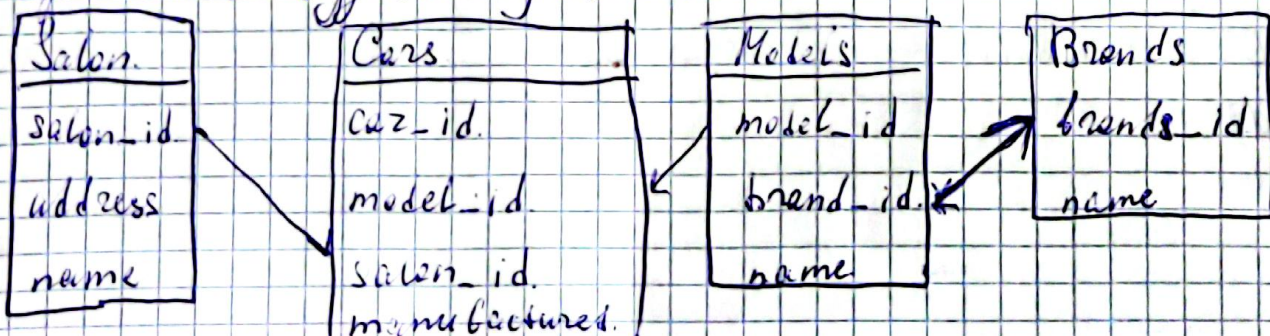 Salon.
salon_id
address
name
Cars
car_id.
model_id.
salon_id.
manufactured.
Models
model_id
brand_id.
name
Brands
brands_id
name